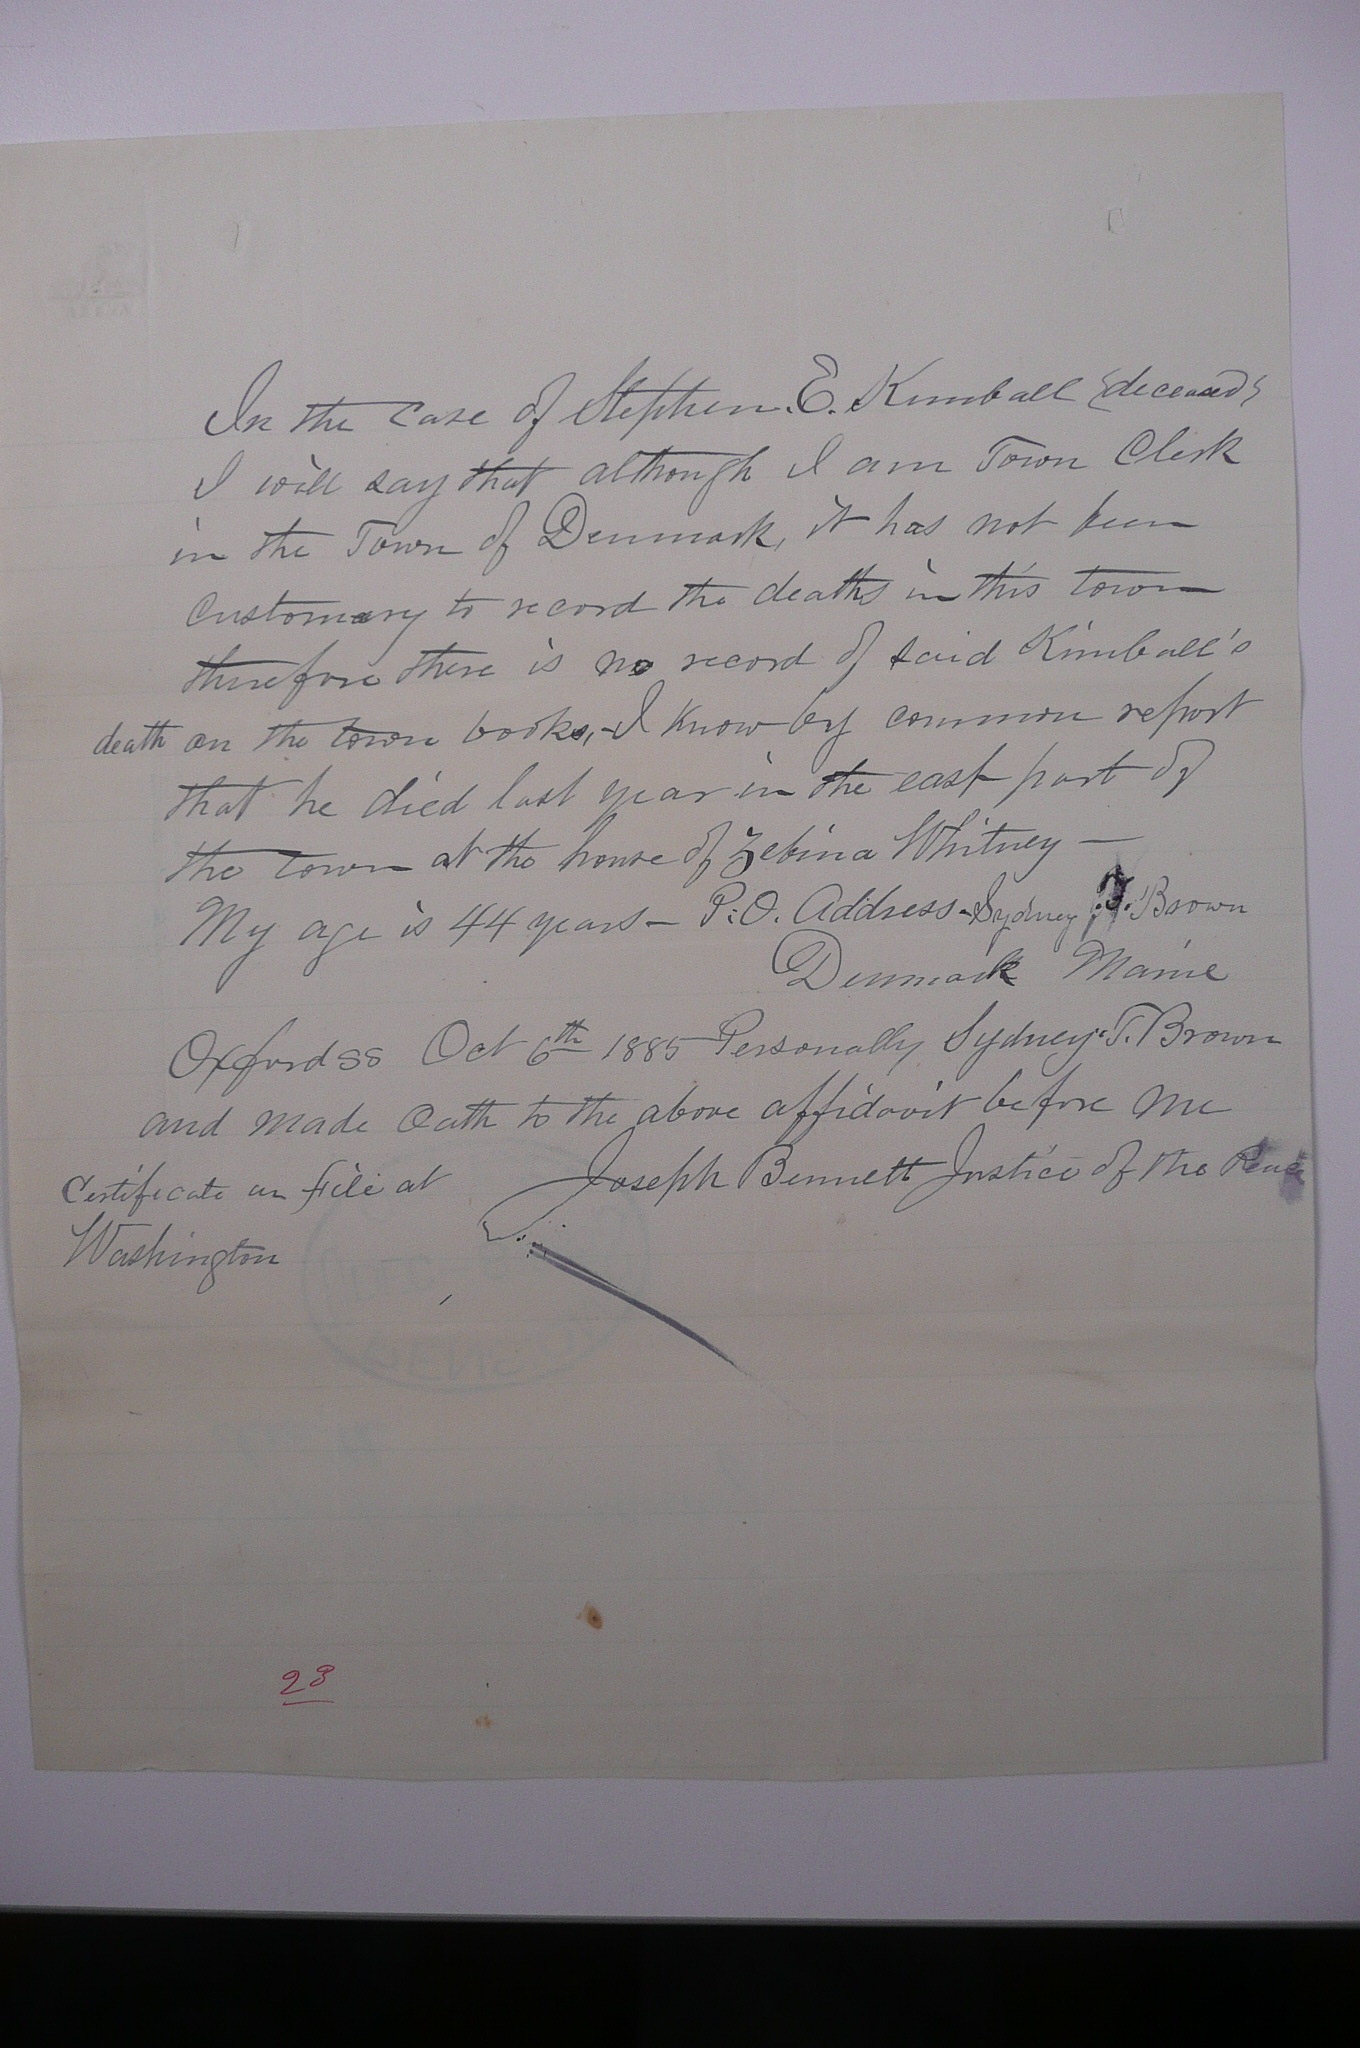 In the case of Stephen. E. Kimball (deceased)
I will say that although I am Town Clerk
in the Town of Denmark, it has not been
customary to record the deaths in this town
therefore there is no record of said Kimball's
death on the town books,- I know by common report
that he died last year in the east part of
the town at the house of Zebina Whitney —
My age is 44 years — P.O. Address - Sydney T. Brown
Denmark Maine
Oxford ss Oct 6th 1885 Personally Sydney T. Brown
and made Oath to the above affidavit before me
Joseph Bennett Justice of the Peace
Certificate on file at
Washington
23